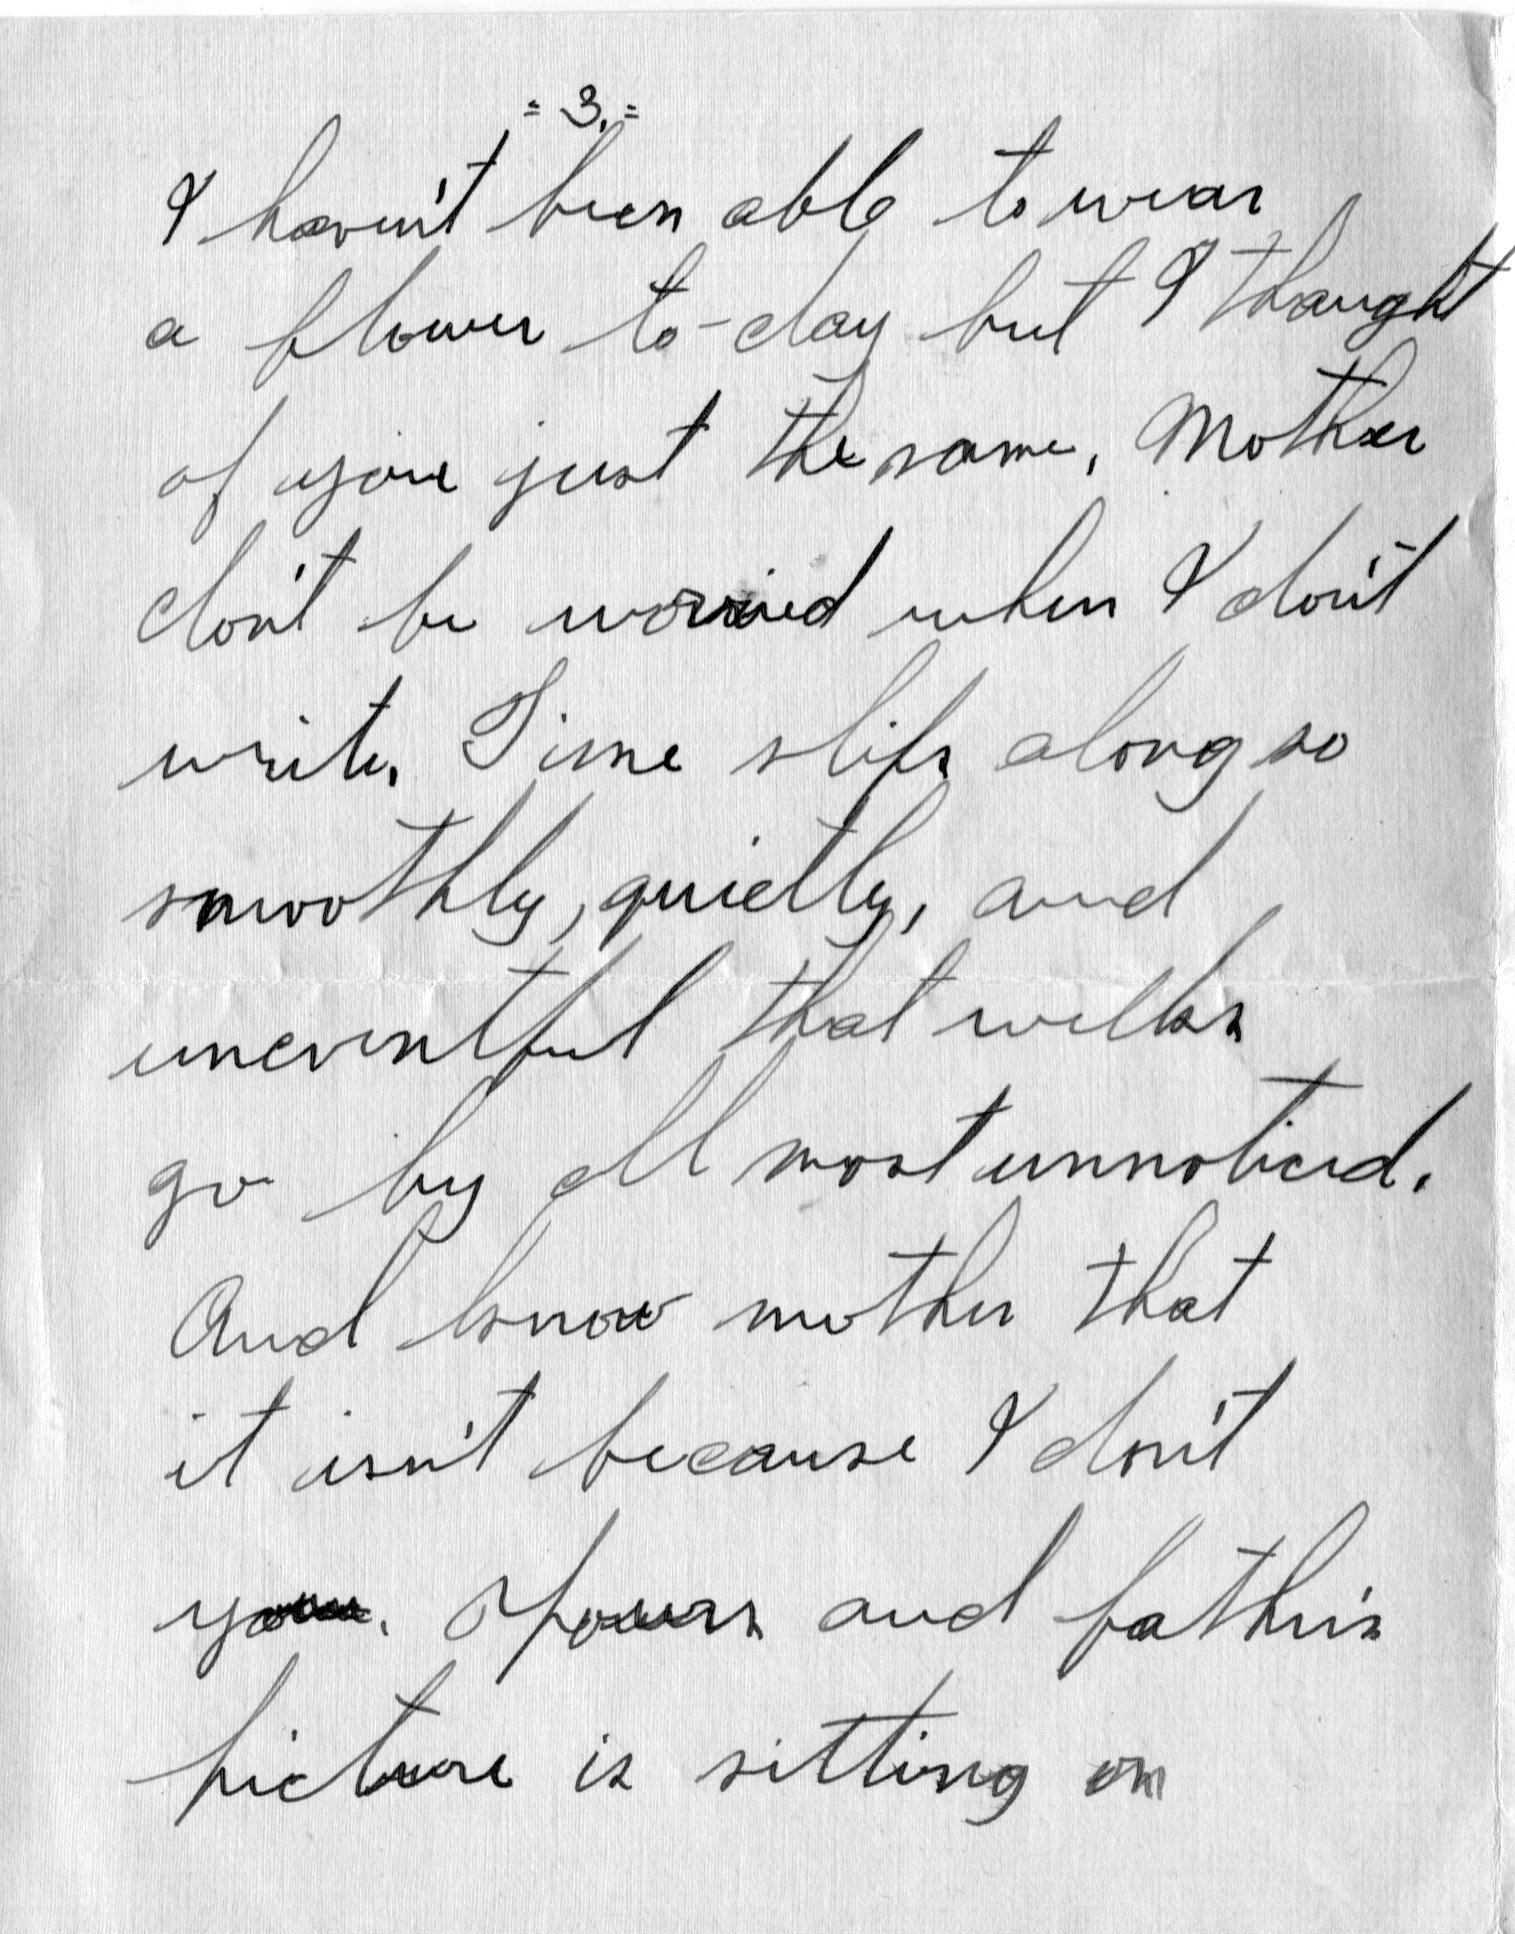 = 3. =
I haven't been able to wear
a flower to-day but I thought
of you just the same. Mother
don't be worried when I don't
write. Time slips along so
smoothly, quietly, and
uneventful that weeks
go by all most unnoticed.
And know mother that
it isn't because I don't
you. Yours and father's
picture is sitting on